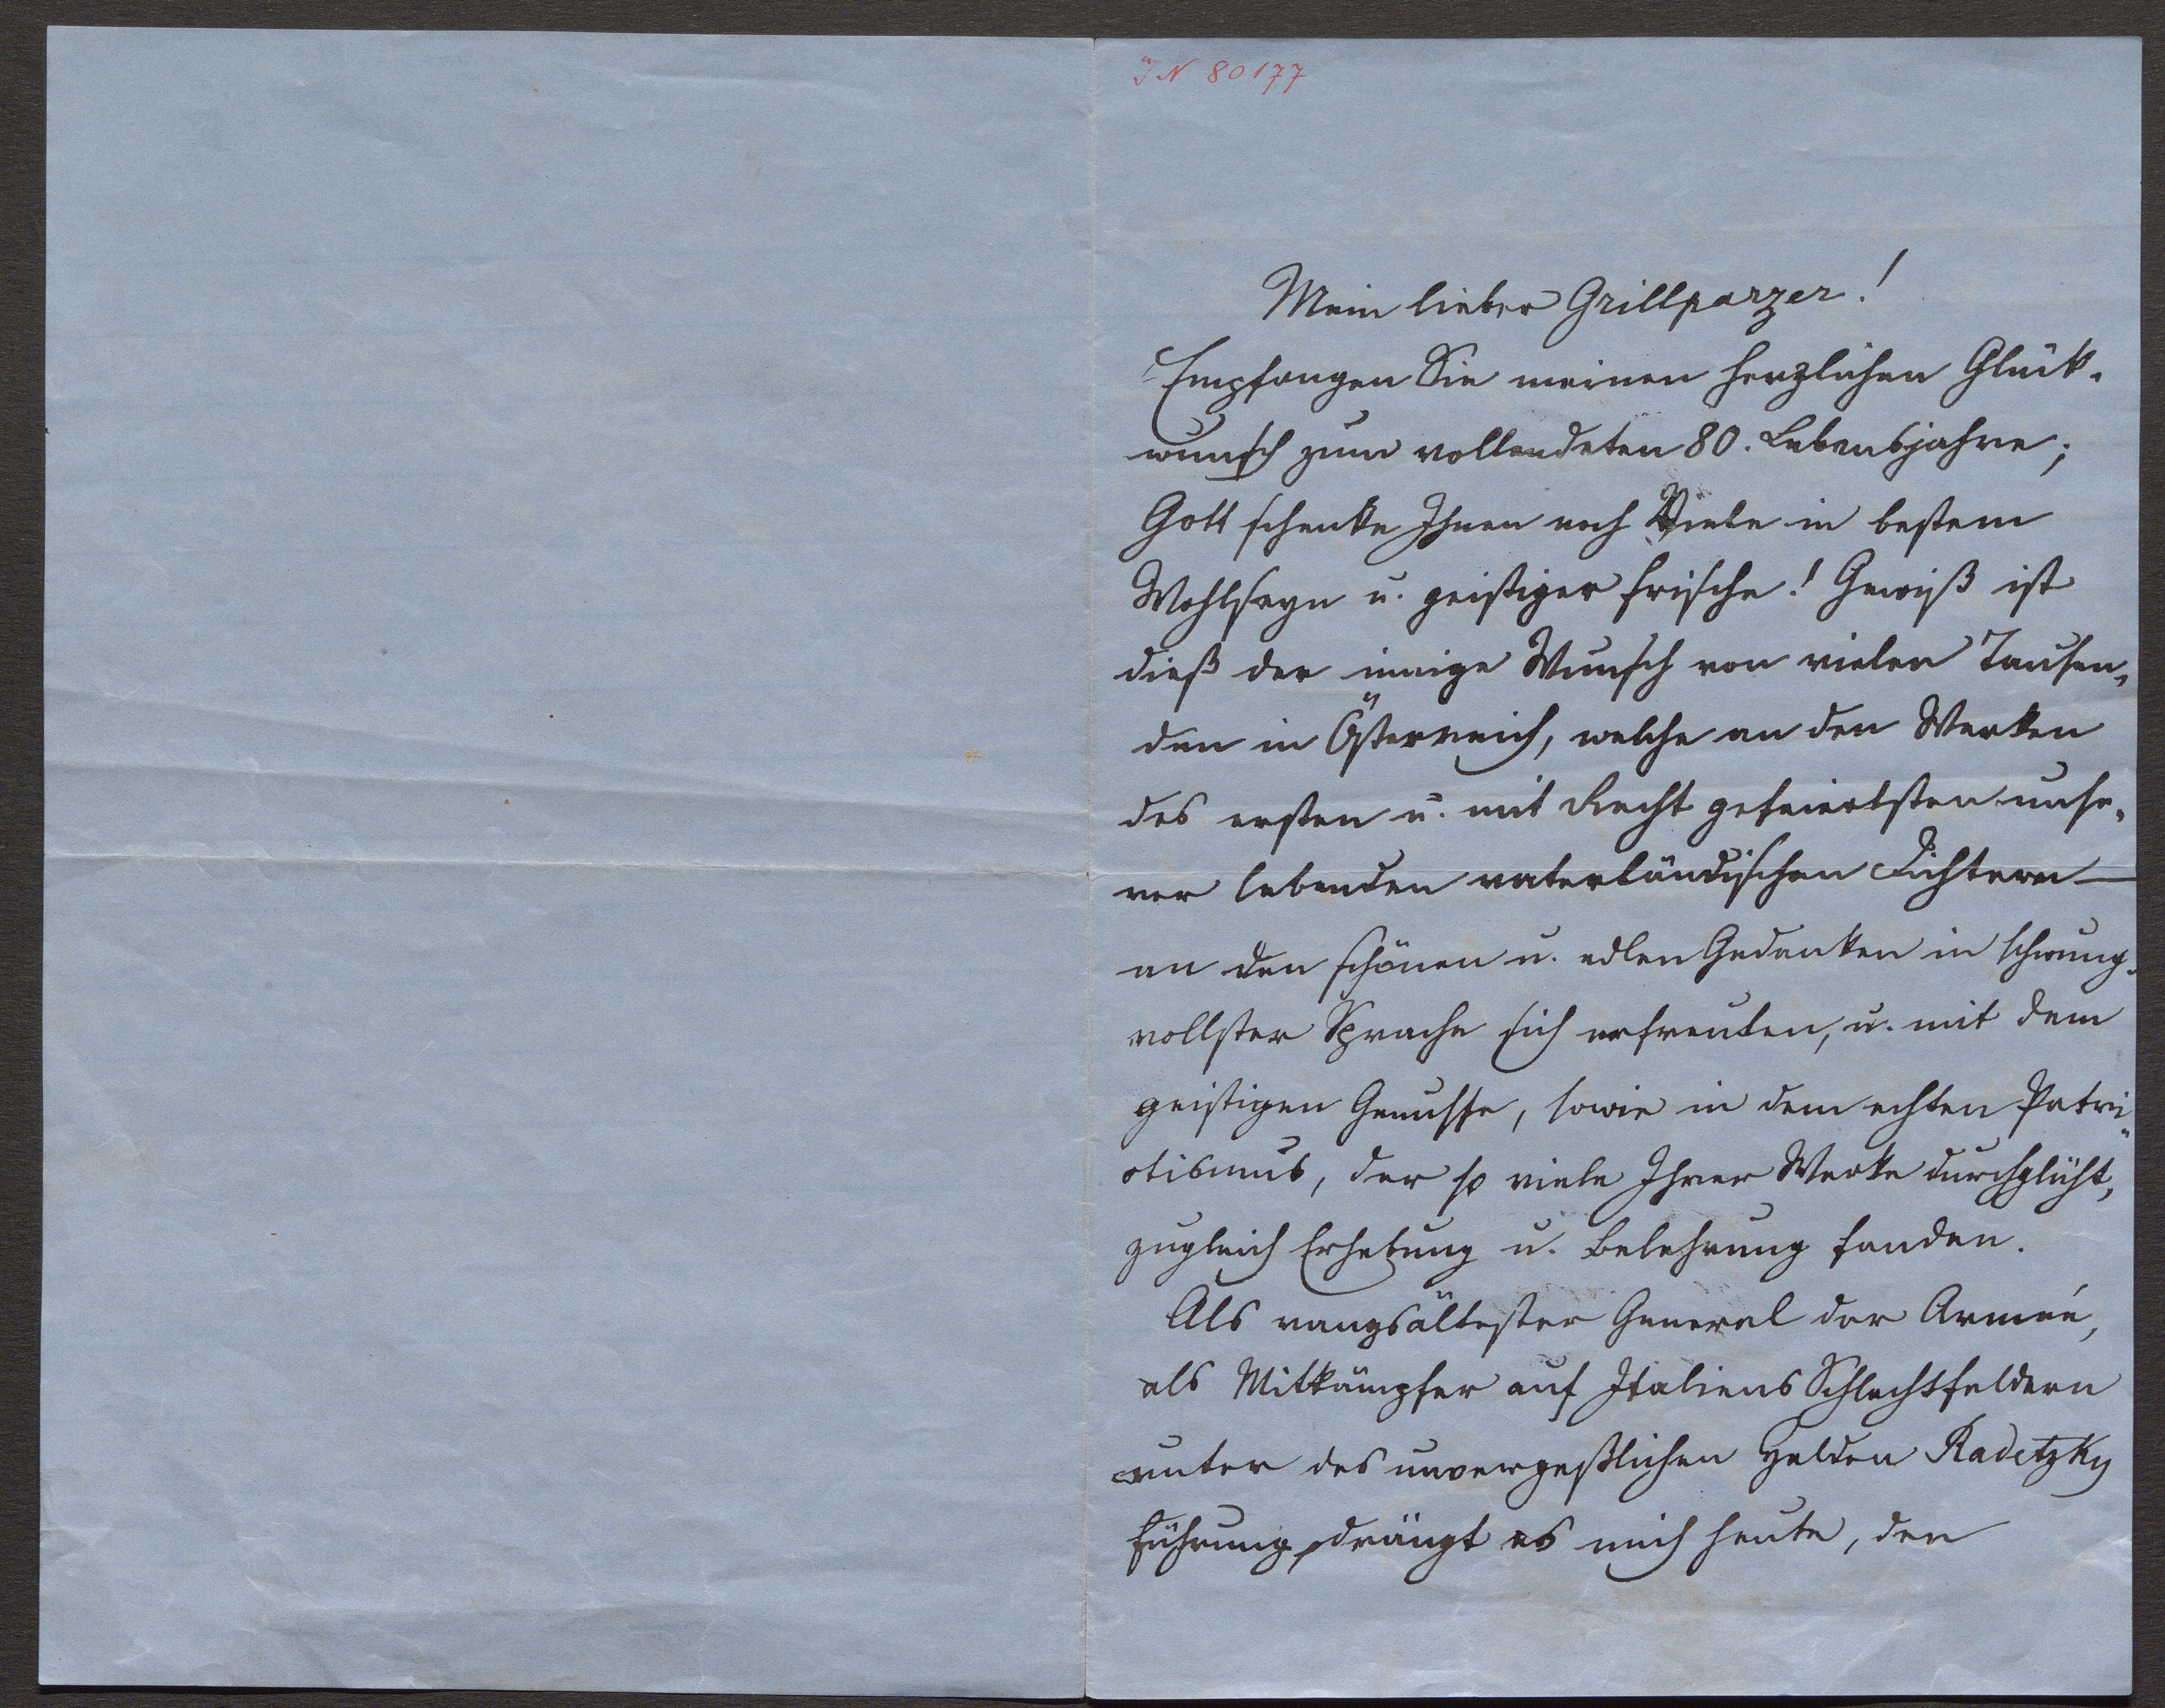 IN 80177
Mein lieber Grillparzer!
Empfangen Sie meinen herzlichen Glück-
wunsch zum vollendeten 80. Lebensjahre;
Gott schenke Ihnen noch Viele in bestem
Wohlseyn u. geistiger Frische! Gewiß ist
dieß der innige Wunsch von vielen Tausen-
den in Österreich, welche an den Werken
des ersten u. mit Recht gefeiertsten unse-
rer lebenden vaterländischen Dichtern —
an den schönen u. edlen Gedanken in schwung-
vollster Sprache sich erfreuten, u. mit dem
geistigen Genusse, sowie in dem echten Patri-
otismus, der so viele Ihrer Werke durchglüht,
zugleich Erhebung u. Belehrung fanden.
Als rangsältester General der Armée,
als Mitkämpfer auf Italiens Schlachtfeldern
unter des unvergeßlichen Helden Radetzky
Führung, drängt es mich heute, den